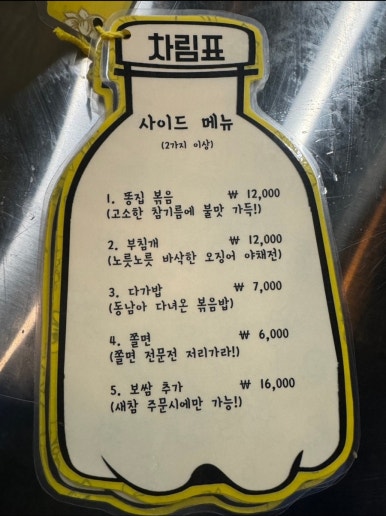 차림표
사이드 메뉴
(2가지 이상)
1. 똥집 볶음 ₩ 12,000
(고소한 참기름에 불맛 가득!)
2. 부침개 ₩ 12,000
(노릇노릇 바삭한 오징어 야채전)
3. 다가밥 ₩ 7,000
(동남아 다녀온 볶음밥)
4. 쫄면 ₩ 6,000
(쫄면 전문전 저리가라!)
5. 보쌈 추가 ₩ 16,000
(새참 주문시에만 가능!)